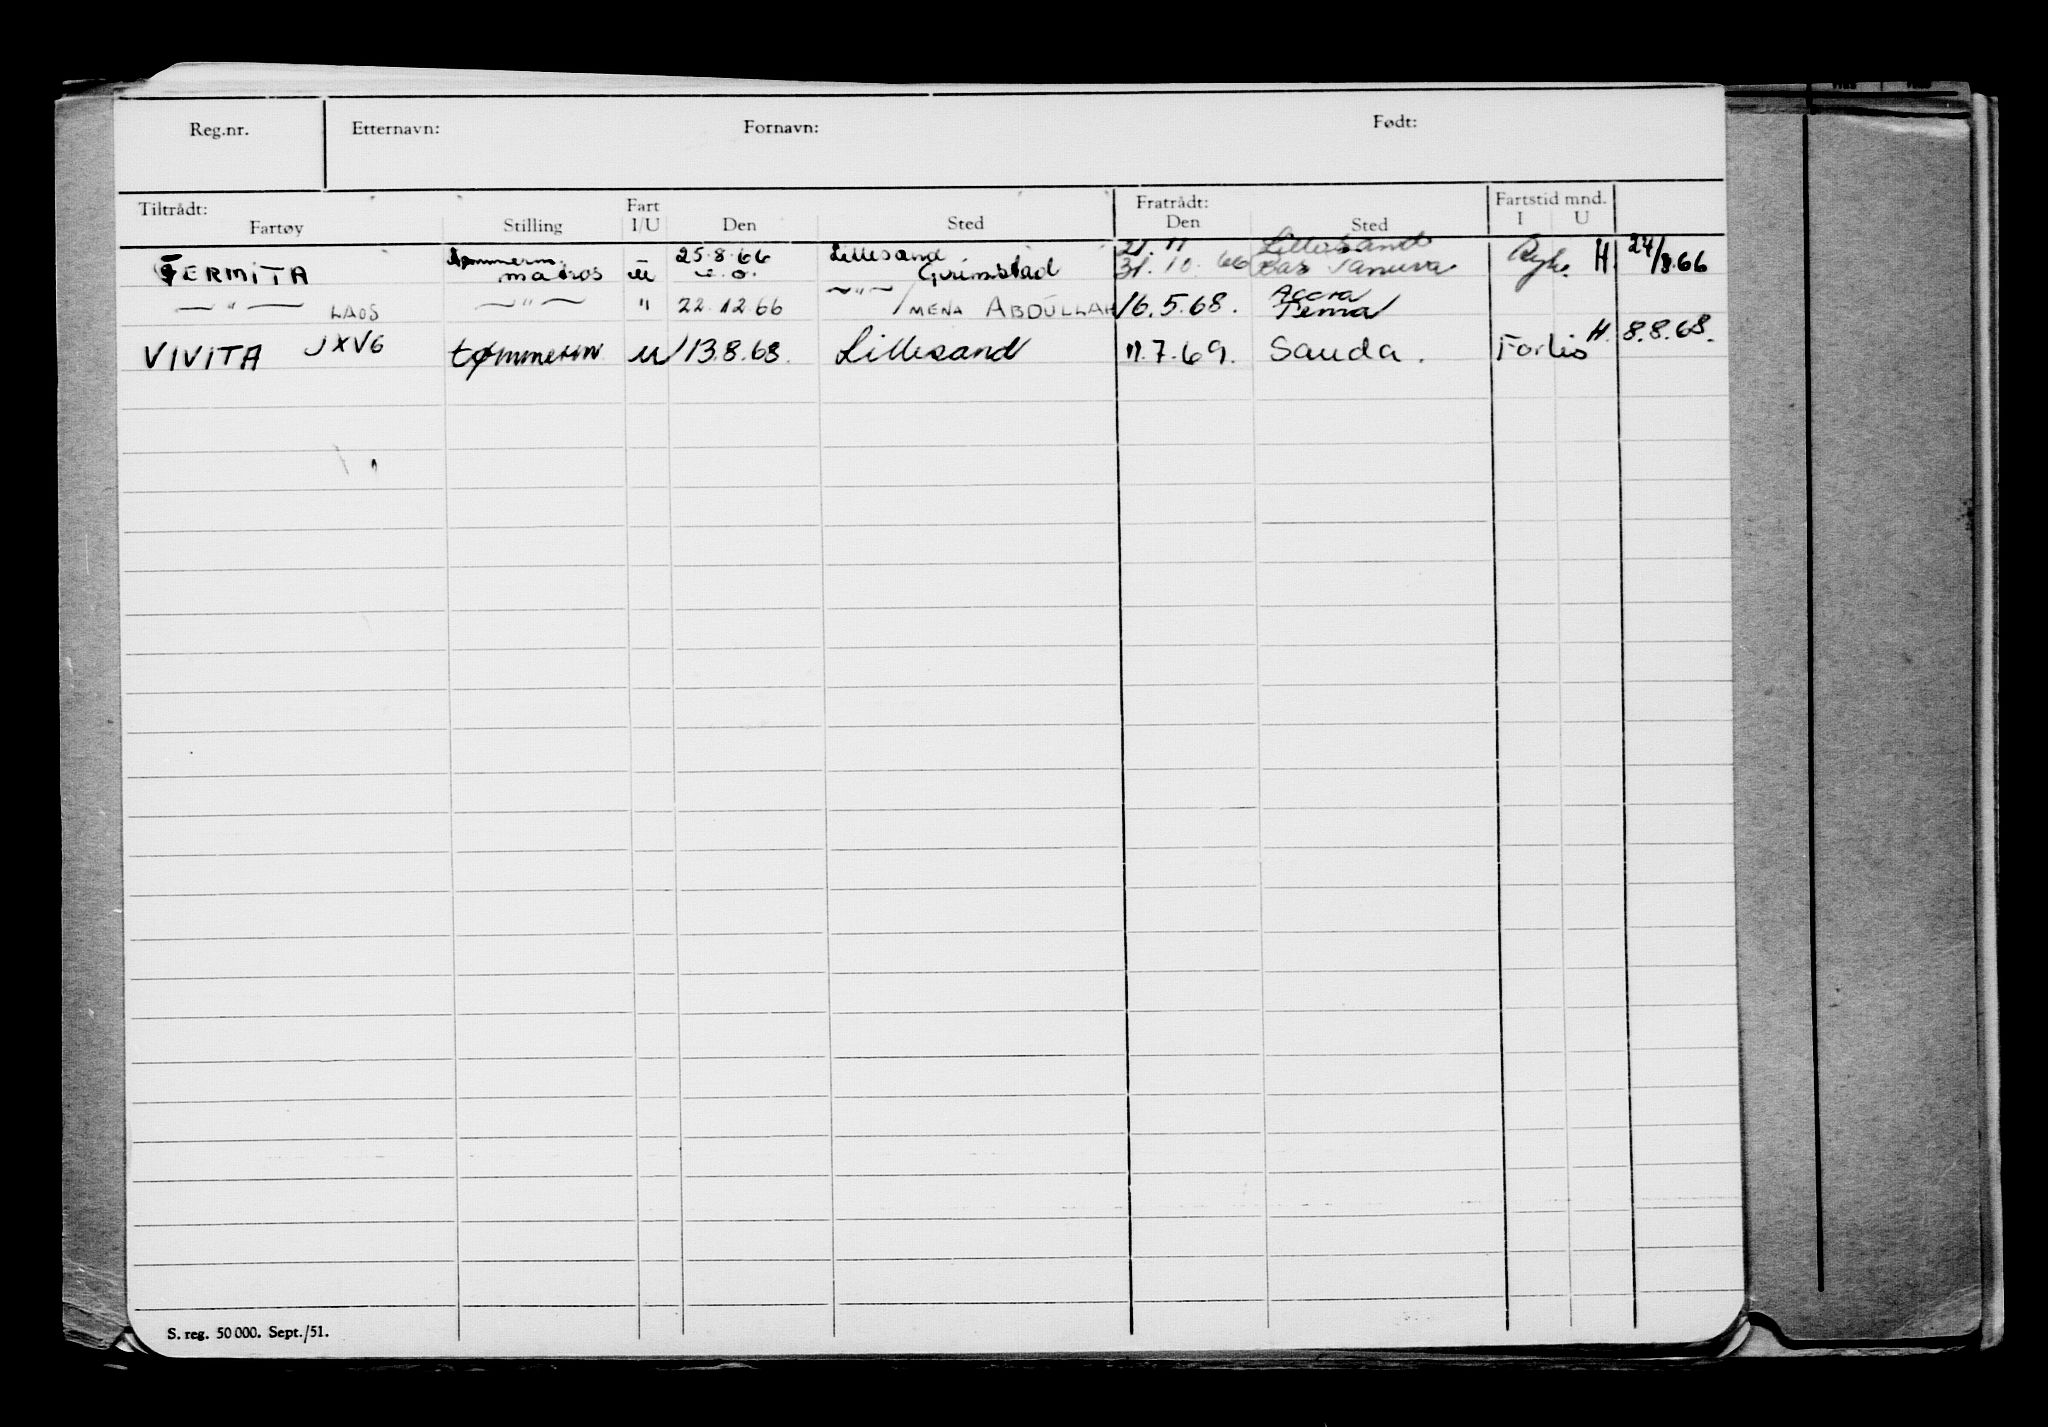 Reg.nr. Etternavn: Fornavn: Født:
Tiltrådt: Fart Fratrådt: Fartstid mnd.
Fartøy Stilling I/U Den Sted Den Sted I U
Tømmerm. 25.8.66 Lillesand 21. 11 Lillesand
FERMITA matros u Grimstad 31. 10. 66 H 24/8.66
— " — LAOS — " — " 22.12.66 — " — / MENA ABDULLAH 16.5.68. Accra
Tema
VIVITA JXVG tømmerm u 13.8.68. Lillesand 11.7.69. Sauda. H. 8.8.68.
S. reg. 50 000. Sept./51.